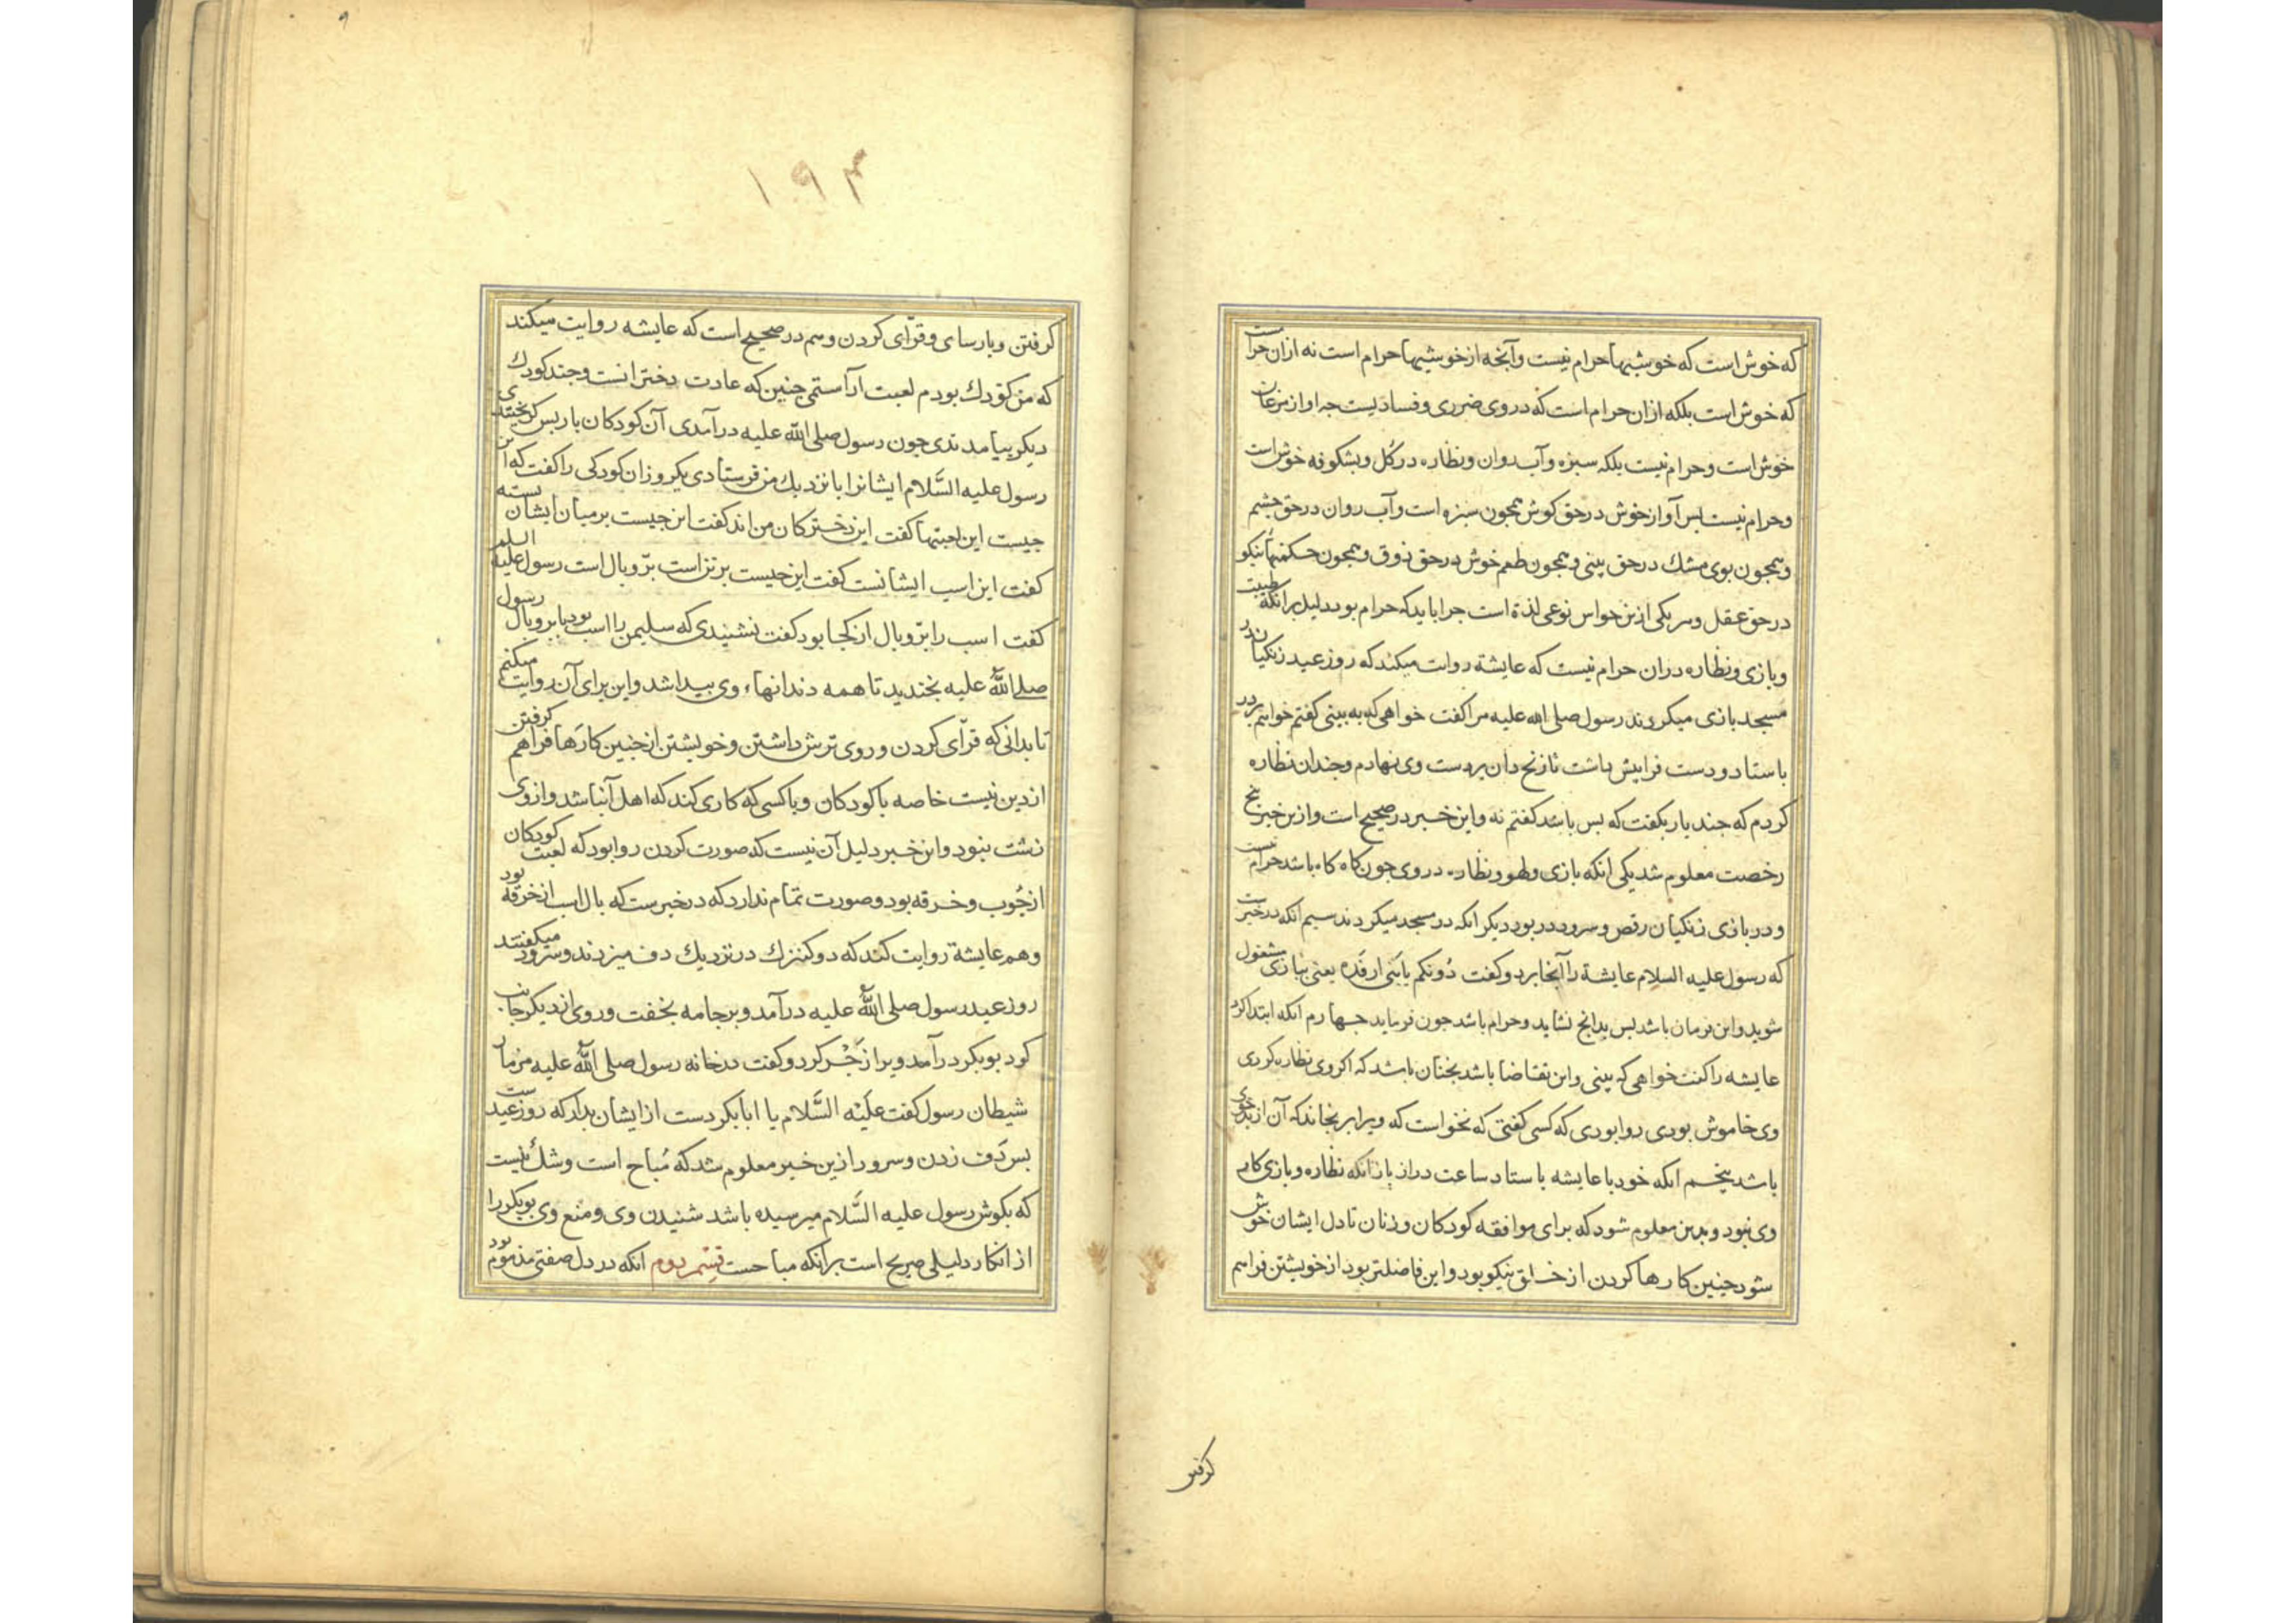 که خوش است که خوشیها حرام نیست وآنجه ازخوشیها حرام است نه ازان حرامست
که خوش است بلکه ازان حرام است که دروی ضرری وفسادیست جه اواز مرغان
خوش است وحرام نیست بلکه سبزه وآب روان ونظاره درکل وبشکوفه خوش است
وحرام نیست بس آواز خوش درحق کوش همجون سبزه است وآب روان درحق جشم
وهمجون بوی مشك درحق بینی وهمجون طعم خوش درحق ذوق وهمجون حکمتهأ نیکو
درحق عقل وهریکی ازین حواس نوعی لذة است جرا باید که حرام بود دلیل برانکه طیبت
وبازی ونظاره دران حرام نیست که عایشة روایت میکند که روز عید زنکیان در
مسجد بازی میکردند رسول صلی الله علیه مرا کفت خواهی که به بینی کفتم خواهم بردر
باستاد ودست فرابیش داشت تا زنخ دان بردست وی نهادم وجندان نظاره
کردم که جند بار بکفت که بس باشد کفتم نه واین خبر درصحیح است وازین خبر پنج
رخصت معلوم شد یکی انکه بازی ولهو ونظاره دروی جون کاه کاه باشد حرام نیست
ودر بازی زنکیان رقص وسرود بود دیکر انکه درمسجد میکردند سیم انکه درخبرست
که رسول علیه السلام عایشة را آنجا برد وکفت دُونکم یا بَنی ارفَدَه یعنی ببازی مشغول
شوید واین فرمان باشد بس بدانج نشاید وحرام باشد جون فرماید جهارم انکه ابتدا کرد
عایشه را کفت خواهی که بینی واین تقاضا باشد نجنان باشد که اکروی نظاره کردی
وی خاموش بودی روا بودی که کسی کفتی که نخواست که ویرا برنجاند که آن از بد خوی
باشد پنجم انکه خود با عایشه باستاد ساعت دراز بازانکه نظاره وبازی کار
وی نبود وبدین معلوم شود که برای موافقه کودکان وزنان تا دل ایشان خوش
شود جنین کارها کردن ازخلق نیکو بود واین فاضلتر بود ازخویشتن فراهم
کرفتن
۱۹۴
کرفتن وبارسای وقرّای کردن وهم درصحیح است که عایشه روایت میکند
که من کوَدك بودم لعبت آراستمی جنین که عادت دخترانست وجند کودك
دیکر بیامدندی جون رسول صلی الله علیه درآمدی آن کودکان باربس کریختندی
رسول علیه السَّلام ایشانرا بانزدیك من فرستادی یکروز ان کودکی را کفت که این
جیست این لعبتها کفت این دخترکان من اند کفت این جیست برمیان ایشان بسته
کفت این اسب ایشانست کفت این جیست برین است برّ وبال است رسول علیه السلم
کفت اسب را برّ وبال ازکجا بود کفت نشنیدی که سلیمن را اسب بود با بر وبال رسول
صلی الله علیه بخندید تا همه دندانهاء وی بیدا شد واین برای آن روایت میکنم
تا بدانی که قرّای کردن وروی ترش داشتن وخویشتن ازجنین کارها فراهم کرفتن
از دین نیست خاصه با کودکان وبا کسی که کاری کند که اهل آن باشد وازوی
زشت نبود واین خبر دلیل آن نیست که صورت کردن روا بود که لعبت کودکان
ازجُوب وخرقه بود وصورت تمام ندارد که درخبرست که بال اسب ازخرقه بود
وهم عایشة روایت کند که دو کنیزك درنزدیك دف میزدند وسرود میکفتند
روز عید رسول صلی الله علیه درآمد وبرجامه بخفت وروی از دیکر جانب
کرد بوبکر درآمد ویرا زَجْر کرد وکفت درخانه رسول صلی الله علیه مزمار
شیطان رسول کفت عَلَیْه السَّلام یا ابابکر دست ازایشان بدار که روز عیدست
بس دَف زدن وسرود ازین خبر معلوم شد که مُباح است وشكّ نیست
که بکوش رسول علیه السَّلام میرسیده باشد شنیدن وی ومنع وی بوبکررا
از انکار دلیلی صریح است برانکه مباحست قسم دوم انکه دردل صفتی مذموم بود